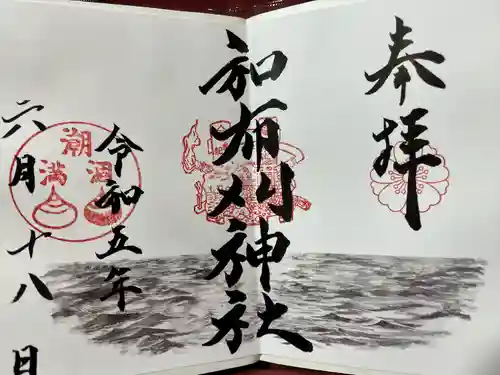 奉拝
和布刈神社
令和五年
六月十八日
潮涸
満